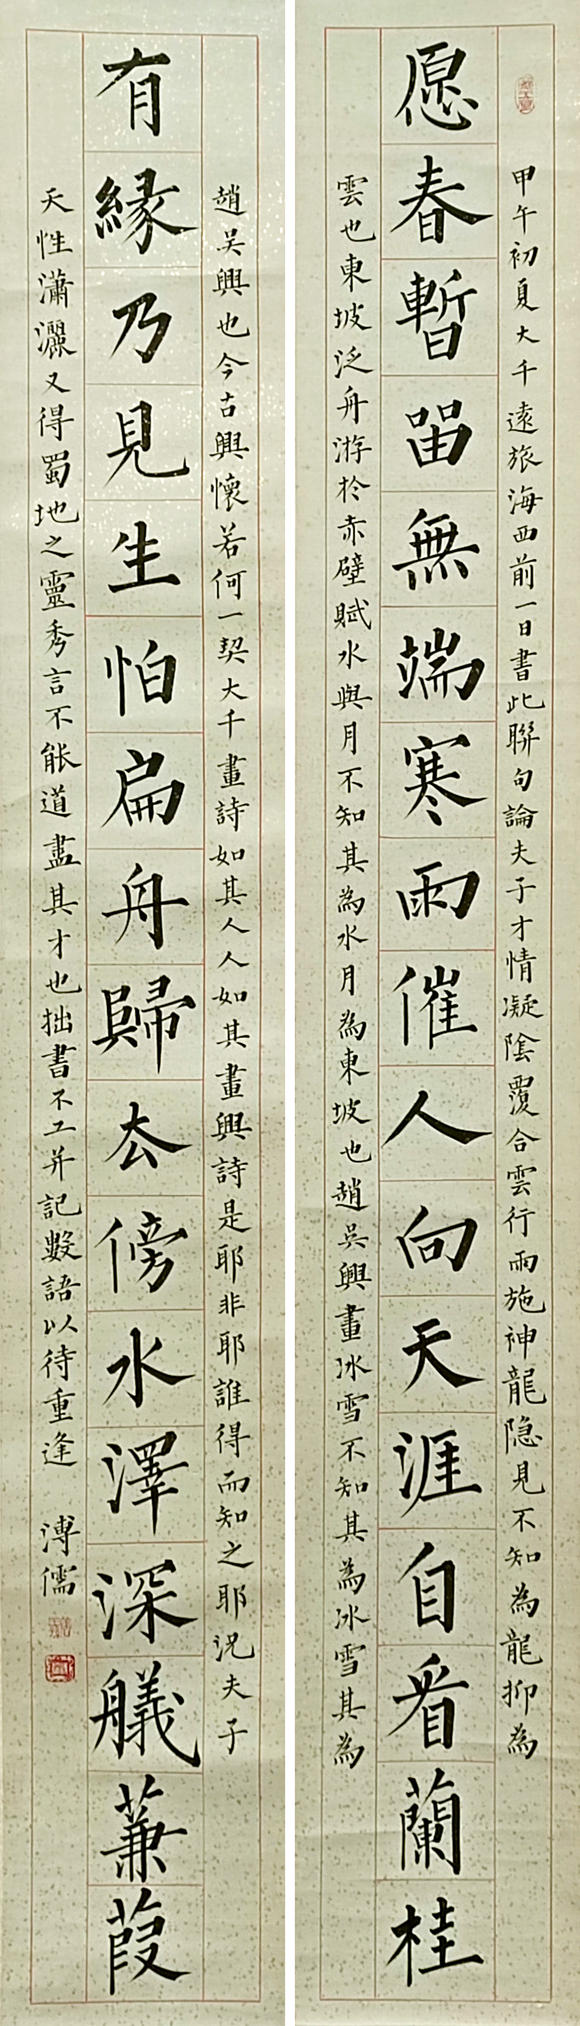 甲午初夏大千遠旅海西前一日書此聯句論夫子才情凝陰覆合雲行雨施神龍隐見不知為龍抑為
愿春暫留無端寒雨催人向天涯自看蘭桂
雲也東坡泛舟游於赤壁賦水與月不知其為水月為東坡也趙吳興畫冰雪不知其為冰雪其為
趙吳興也今古興懷若何一契大千畫詩如其人人如其畫興詩是耶非耶誰得而知之耶況夫子
有緣乃見生怕扁舟歸去傍水澤深艤蒹葭
天性瀟灑又得蜀地之靈秀言不能道盡其才也拙書不工并記數語以待重逢 溥儒